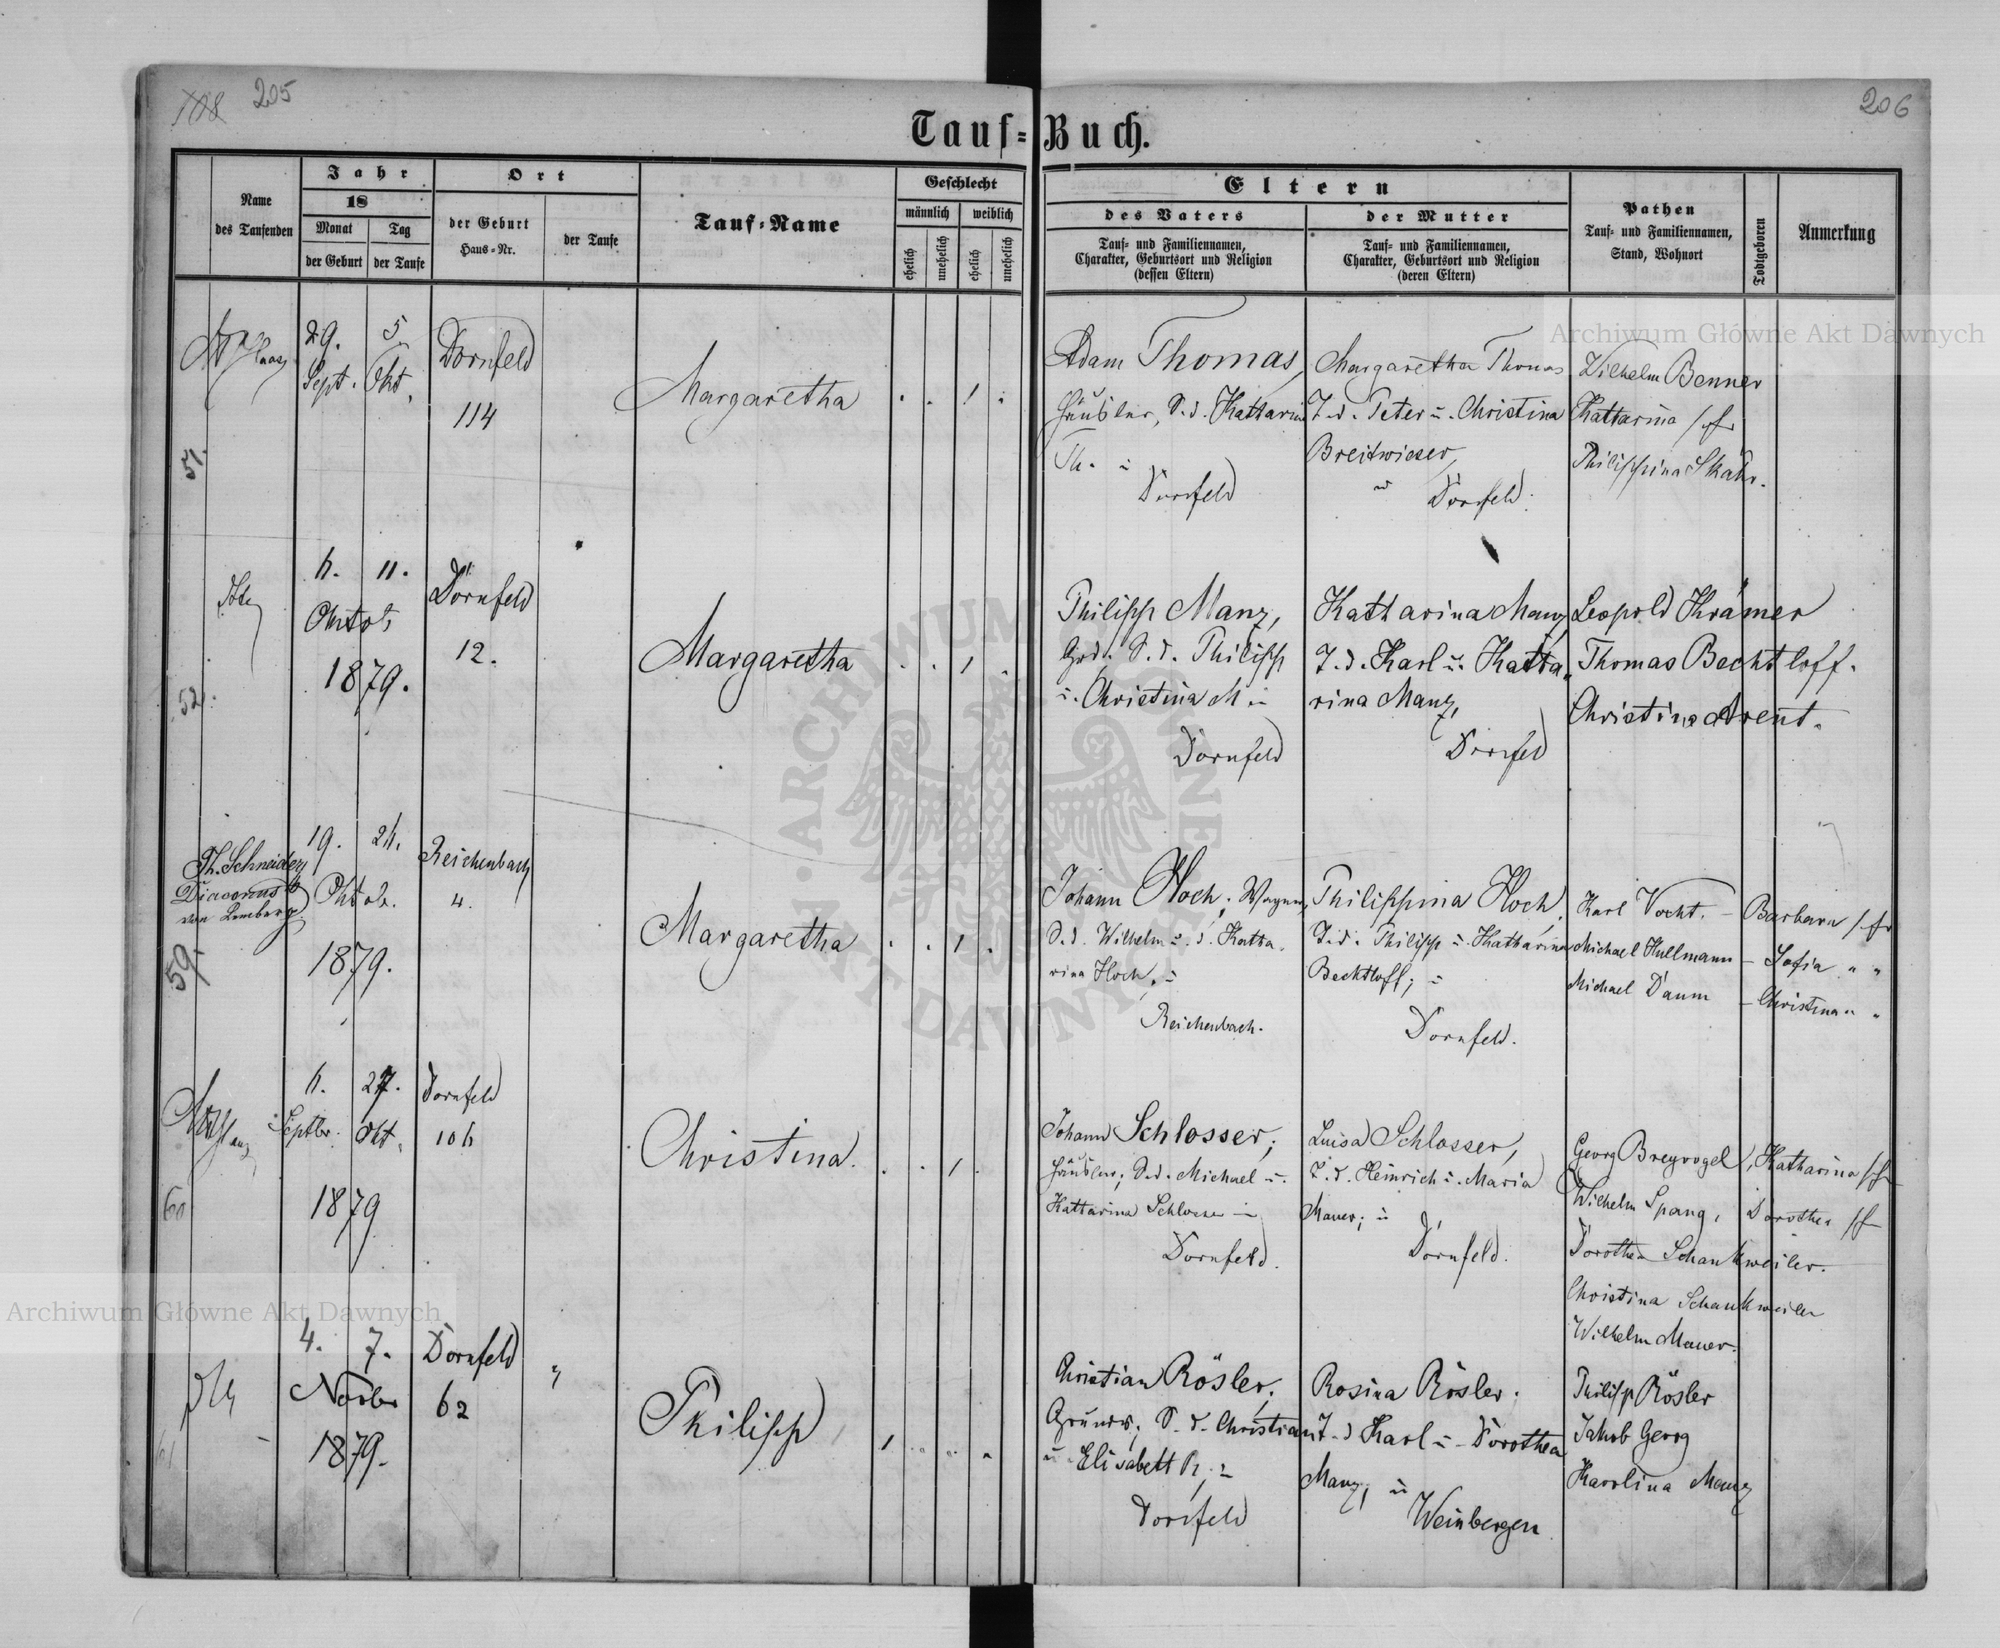 108 205
206
Tauf-Buch.
Name
des Taufenden
Jahr
18
Monat
der Geburt
Tag
der Taufe
Ort
der Geburt
Haus-Nr.
der Taufe
Tauf-Name
Geschlecht
männlich
weiblich
ehelich
unehelich
ehelich
unehelich
Eltern
des Vaters
Tauf- und Familiennamen,
Charakter, Geburtsort und Religion
(dessen Eltern)
der Mutter
Tauf- und Familiennamen,
Charakter, Geburtsort und Religion
(deren Eltern)
Pathen
Tauf- und Familiennamen,
Stand, Wohnort
Todtgeboren
Anmerkung
51.
29. 5.
Sept. Okt.
Dornfeld
114
Margaretha
Adam Thomas,
Häusler, S. d. Katharina
Th. in
Dornfeld
Margaretha Thomas
T. d. Peter u. Christina
Breitwieser,
Dornfeld.
Wilhelm Benner
Katharina
Philippina Skähr.
52.
11.
Oktob.
1879.
Dornfeld
12.
Margaretha
Philipp Manz,
Grdw. S. d. Philipp
u. Christina M. in
Dornfeld
Katharina Manz
T. d. Karl u. Katha-
rina Manz,
Dornfeld
Leopold Krämer
Thomas Bechtloff.
Christina Arent.
Th. Schneider
Diaconus
von Lemberg
59.
19.
Oktob.
1879.
Reichenbach
4.
Margaretha
Johann Hoch, Wagner,
S. d. Wilhelm u. d. Katha-
rina Hoch, in
Reichenbach.
Philippina Hoch,
T. d. Philipp u. Katharina
Bechtloff; in
Dornfeld.
Karl Vocht. – Barbara
Michael Kullmann – Sofia " "
Michael Daum – Christina " "
60
27.
Septbr. Okt.
1879
Dornfeld
Christina.
Johann Schlosser;
Häusler; S. d. Michael u.
Katharina Schlosser in
Dornfeld.
Luisa Schlosser,
T. d. Heinrich u. Maria
Mauer; in
Dornfeld.
Georg Breyvogel, Katharina
Wilhelm Spang, Dorothea
Dorothea Schankweiler.
Christina Schankweiler
Wilhelm Mauer.
61
4. 7.
Novbr
1879.
Dornfeld
62
Philipp
Christian Rösler;
Grundw; S. d. Christian
u. Elisabeth R; in
Dornfeld
Rosina Rösler;
T. d Karl u. Dorothea
Manz; in
Weinbergen
Philipp Rösler
Jakob Georg
Karolina Manz
Archiwum Główne Akt Dawnych
Archiwum Główne Akt Dawnych
ARCHIWUM GŁÓWNE AKT DAWNYCH